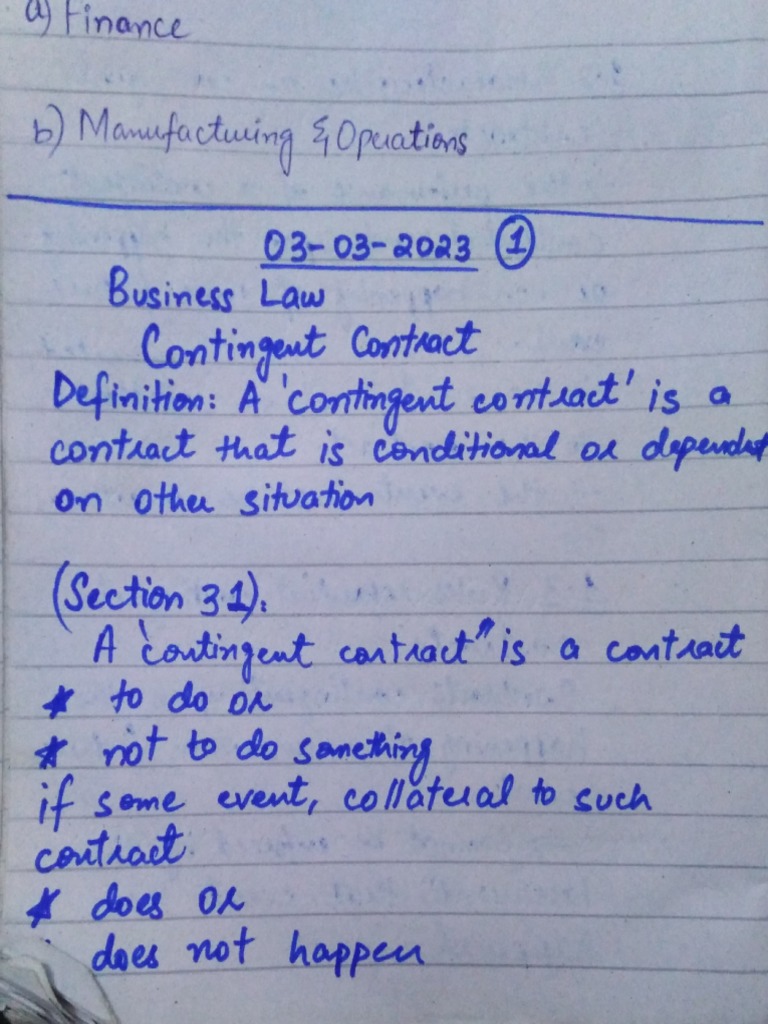 a) Finance
b) Manufacturing & Operations
03-03-2023 ①
Business Law
Contingent Contract
Definition: A 'contingent contract' is a
contract that is conditional or dependent
on other situation
(Section 31):
A 'contingent contract" is a contract
* to do or
* not to do something
if some event, collateral to such
contract
* does or
does not happen